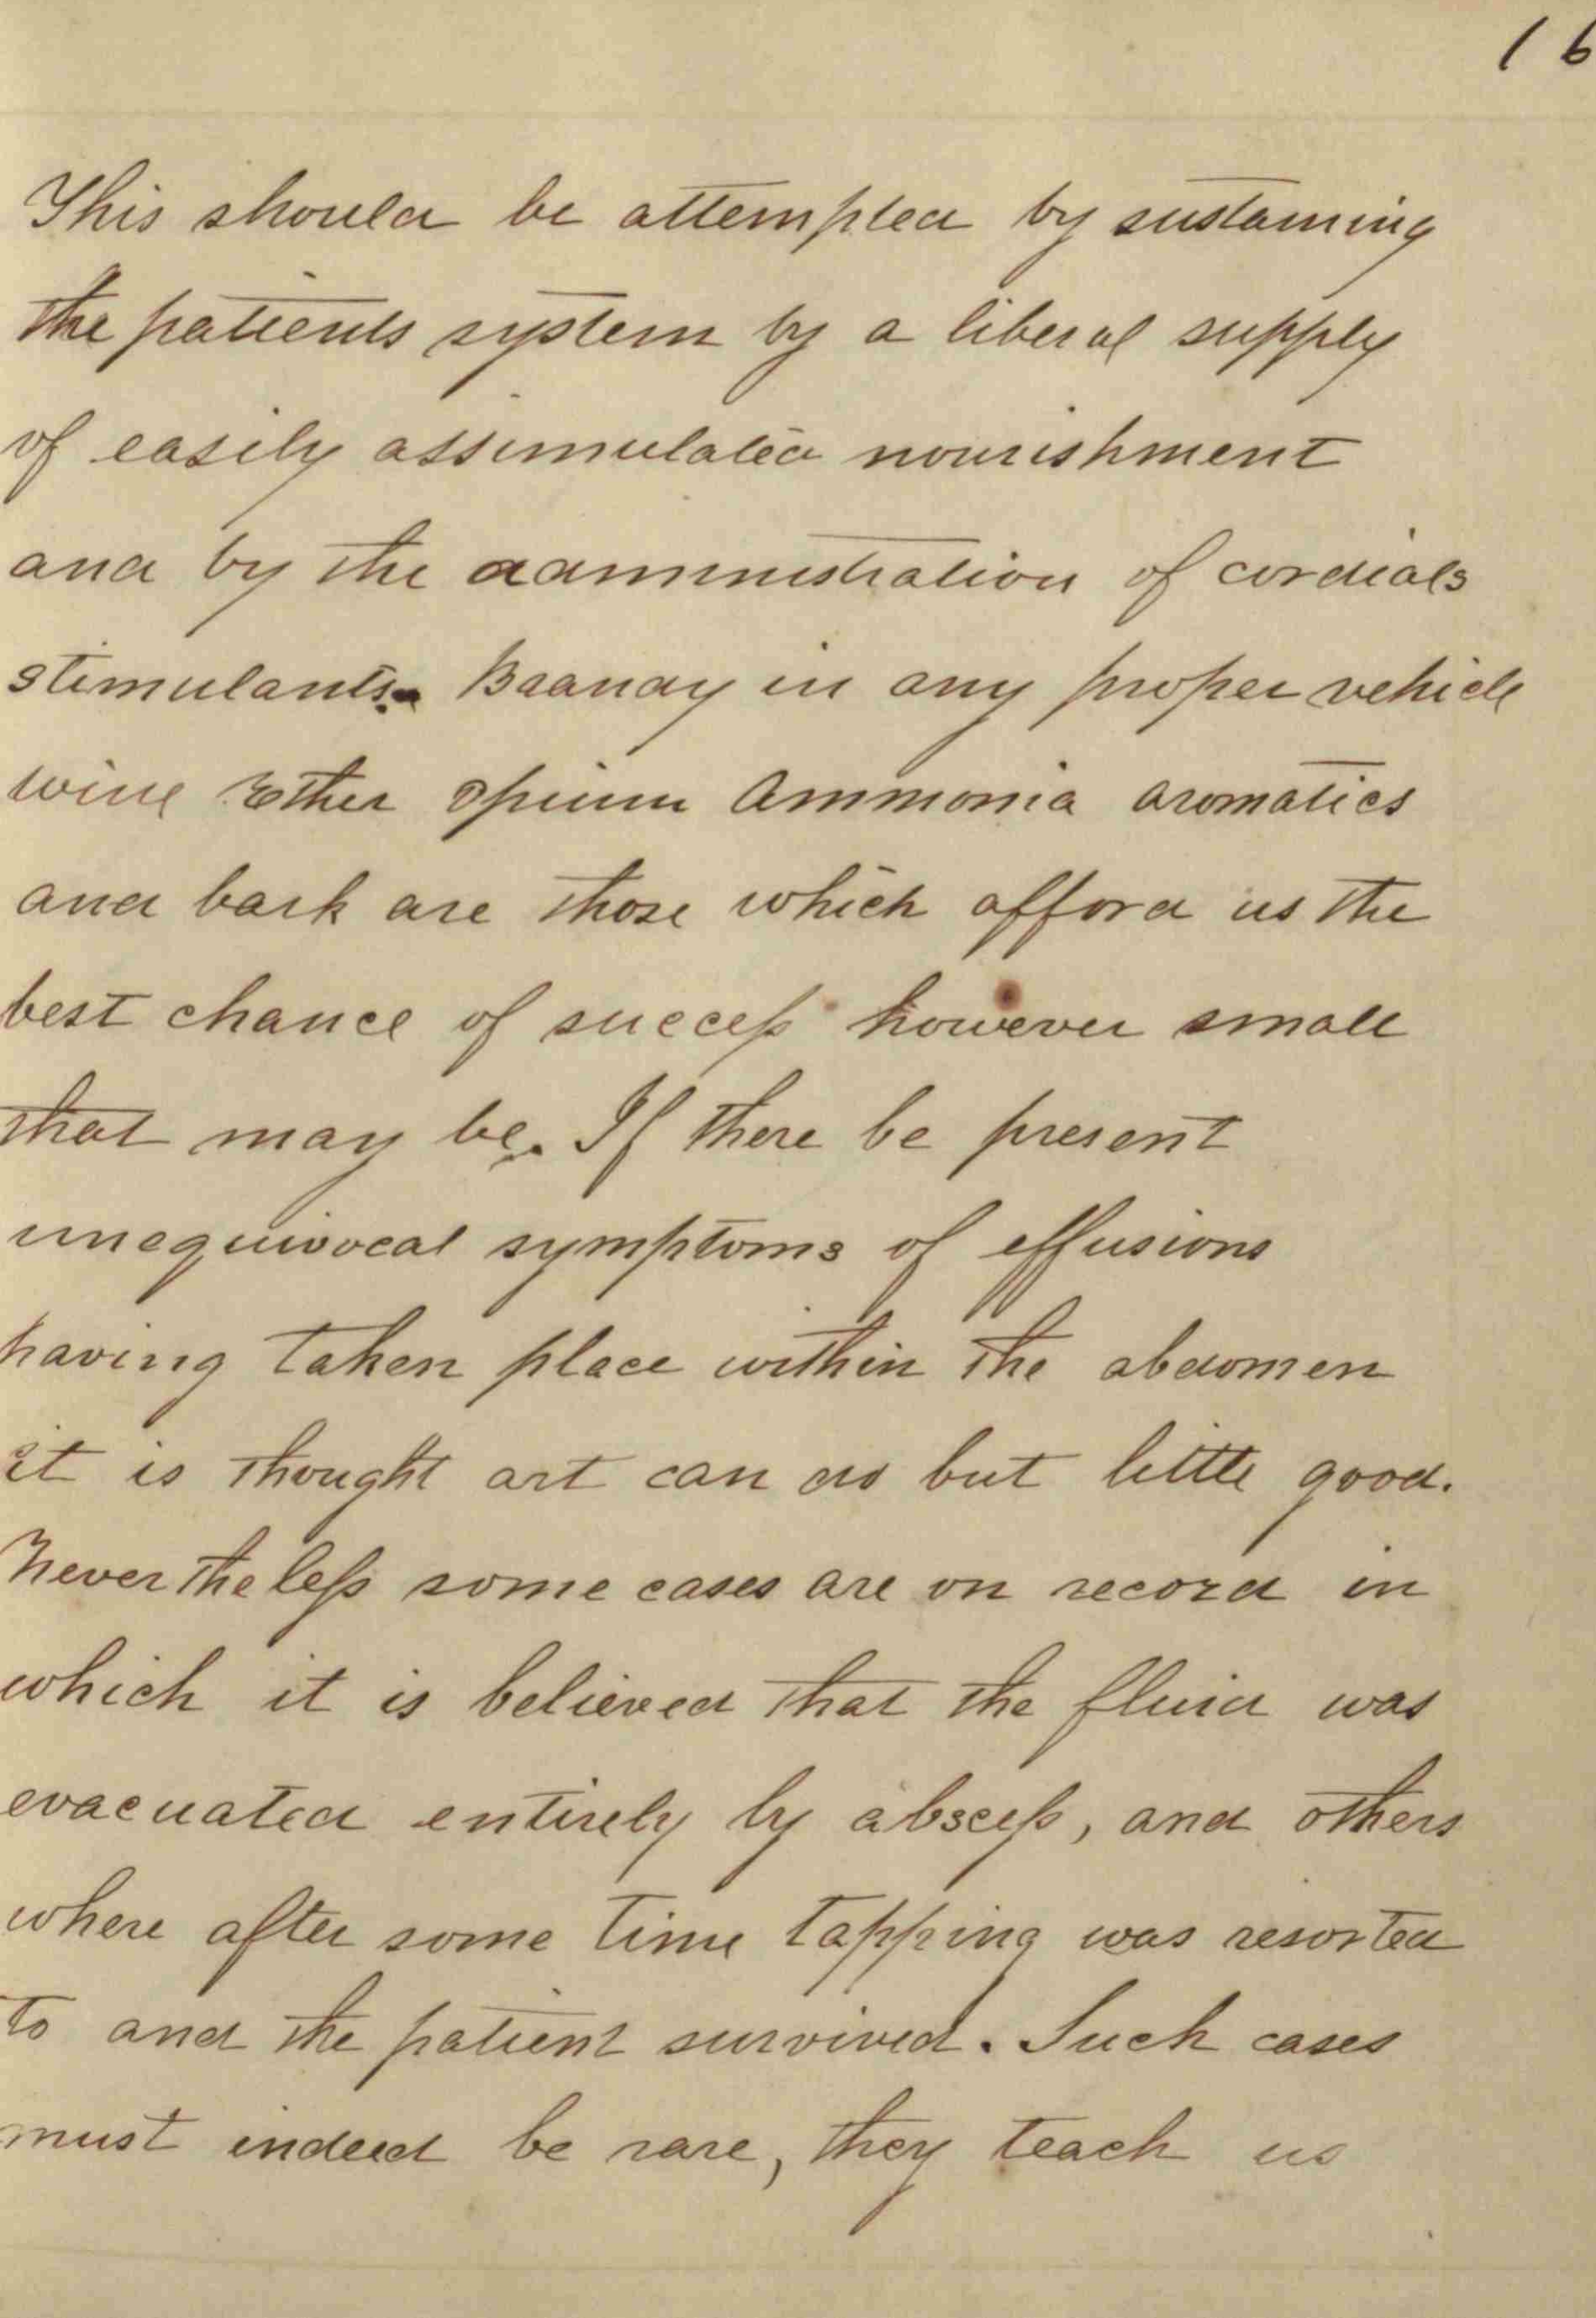 16
This should be attempted by sustaining
the patients system by a liberal supply
of easily assimulated nourishment
and by the administration of cordials
stimulants. Brandy in any proper vehicle
wine Ether Opium Ammonia aromatics
and bark are those which afford us the
best chance of success however small
that may be. If there be present
unequivocal symptoms of effusions
having taken place within the abdomen
it is thought art can do but little good.
Never the less some cases are on record in
which it is believed that the fluid was
evacuated entirely by abscess, and others
where after some time tapping was resorted
to and the patient survived. Such cases
must indeed be rare, they teach us